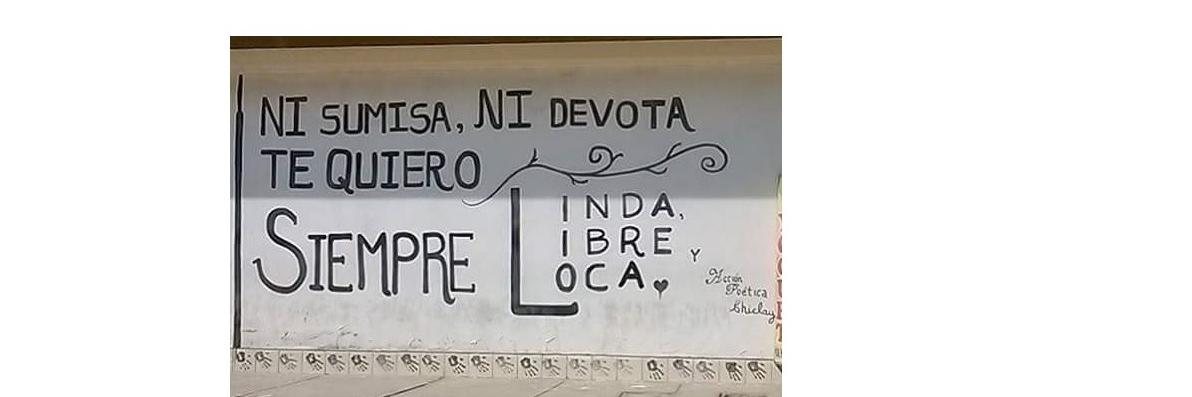 NI SUMISA, NI DEVOTA
TE QUIERO
SIEMPRE LINDA,
LIBRE Y
LOCA
Acción
Poética
Chiclay